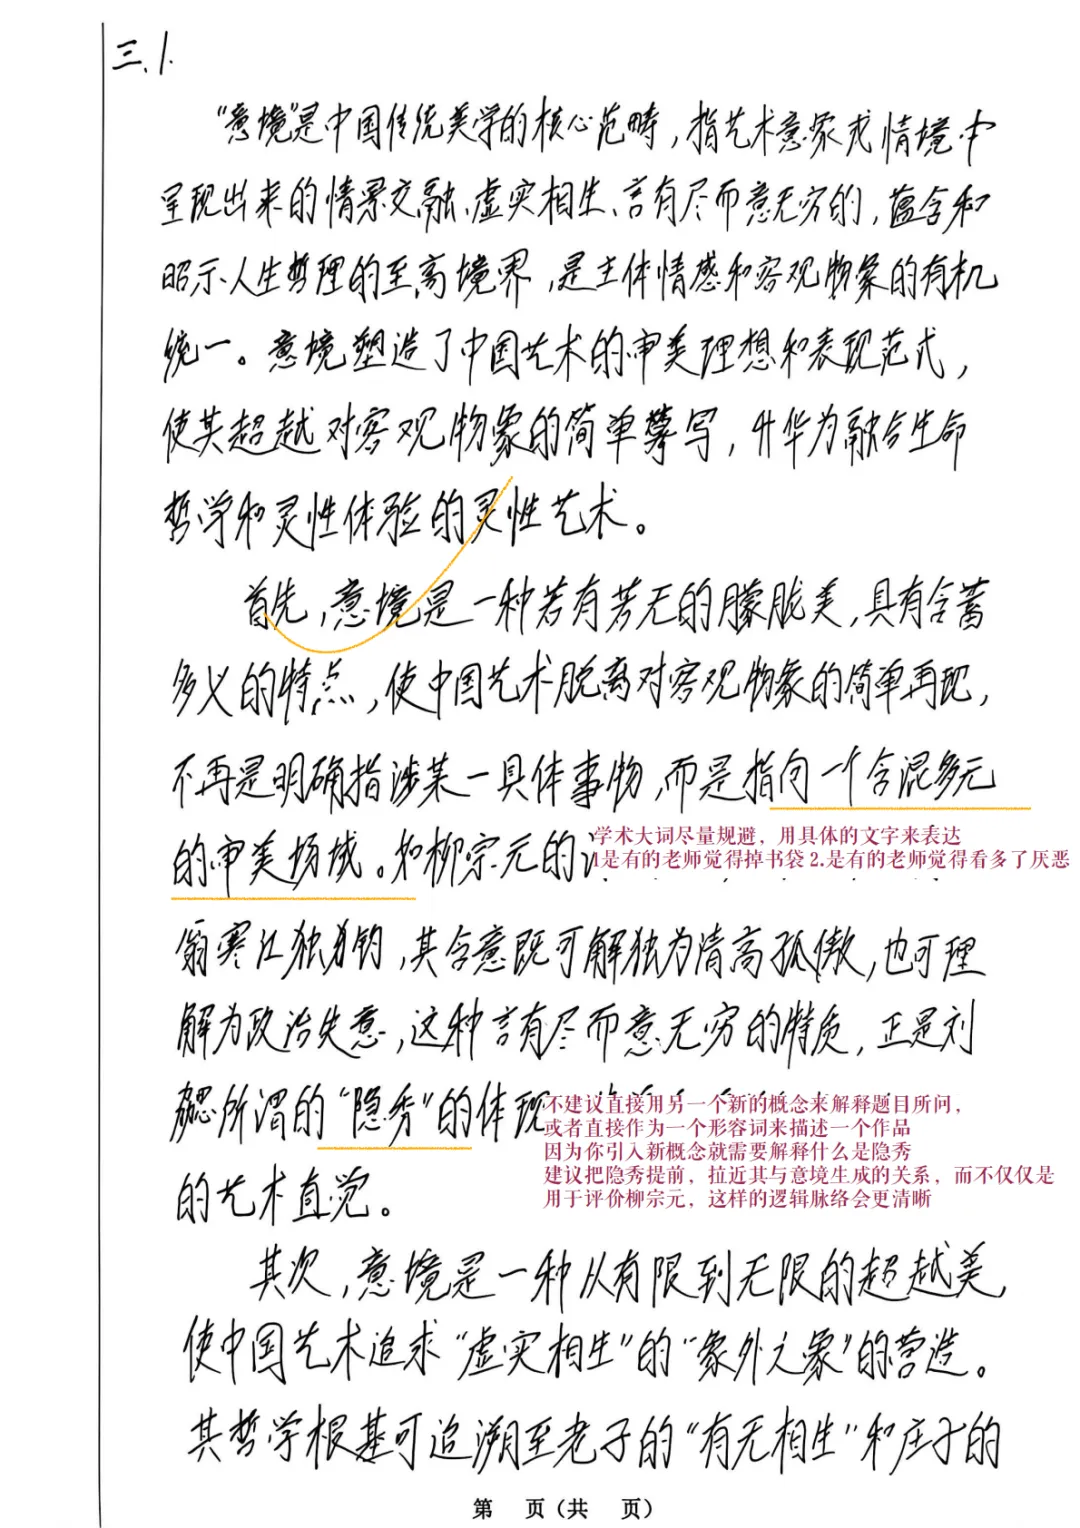 三、1.
“意境”是中国传统美学的核心范畴，指艺术意象或情境中
呈现出来的情景交融、虚实相生、言有尽而意无穷的，蕴含和
昭示人生哲理的至高境界，是主体情感和客观物象的有机
统一。意境塑造了中国艺术的审美理想和表现范式，
使其超越对客观物象的简单摹写，升华为融合生命
哲学和灵性体验的灵性艺术。
首先，意境是一种若有若无的朦胧美，具有含蓄
多义的特点，使中国艺术脱离对客观物象的简单再现，
不再是明确指涉某一具体事物，而是指向一个含混多元
的审美场域。如柳宗元的
学术大词尽量规避，用具体的文字来表达
1是有的老师觉得掉书袋 2.是有的老师觉得看多了厌恶
翁寒江独钓，其含意既可解独为清高孤傲，也可理
解为政治失意，这种言有尽而意无穷的特质，正是刘
勰所谓的“隐秀”的体现
不建议直接用另一个新的概念来解释题目所问，
或者直接作为一个形容词来描述一个作品
因为你引入新概念就需要解释什么是隐秀
建议把隐秀提前，拉近其与意境生成的关系，而不仅仅是
用于评价柳宗元，这样的逻辑脉络会更清晰
的艺术直觉。
其次，意境是一种从有限到无限的超越美，
使中国艺术追求“虚实相生”的“象外之象”的营造。
其哲学根基可追溯至老子的“有无相生”和庄子的
第 页（共 页）